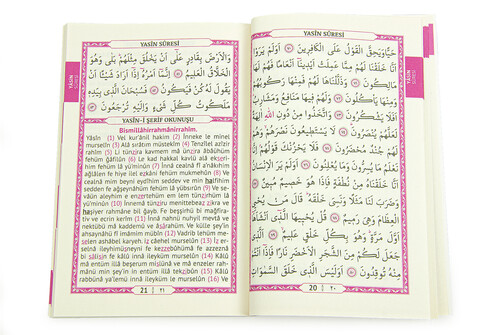 YASİN SÛRESİ
حَيًّا وَيَحِقَّ الْقَوْلُ عَلَى الْكَافِرِينَ ﴿٧٠﴾ اَوَلَمْ يَرَوْا
اَنَّا خَلَقْنَا لَهُمْ مِمَّا عَمِلَتْ اَيْدِينَا اَنْعَامًا فَهُمْ لَهَا
مَالِكُونَ ﴿٧١﴾ وَذَلَّلْنَاهَا لَهُمْ فَمِنْهَا رَكُوبُهُمْ
وَمِنْهَا يَأْكُلُونَ ﴿٧٢﴾ وَلَهُمْ فِيهَا مَنَافِعُ وَمَشَارِبُ
اَفَلَا يَشْكُرُونَ ﴿٧٣﴾ وَاتَّخَذُوا مِنْ دُونِ اللّٰهِ اٰلِهَةً
لَعَلَّهُمْ يُنْصَرُونَ ﴿٧٤﴾ لَا يَسْتَطِيعُونَ نَصْرَهُمْ وَهُمْ
لَهُمْ جُنْدٌ مُحْضَرُونَ ﴿٧٥﴾ فَلَا يَحْزُنْكَ قَوْلُهُمْ اِنَّا
نَعْلَمُ مَا يُسِرُّونَ وَمَا يُعْلِنُونَ ﴿٧٦﴾ اَوَلَمْ يَرَ الْاِنْسَانُ
اَنَّا خَلَقْنَاهُ مِنْ نُطْفَةٍ فَاِذَا هُوَ خَصِيمٌ مُبِينٌ ﴿٧٧﴾
وَضَرَبَ لَنَا مَثَلًا وَنَسِيَ خَلْقَهُ قَالَ مَنْ يُحْيِ
الْعِظَامَ وَهِيَ رَمِيمٌ ﴿٧٨﴾ قُلْ يُحْيِيهَا الَّذِي اَنْشَاَهَا
اَوَّلَ مَرَّةٍ وَهُوَ بِكُلِّ خَلْقٍ عَلِيمٌ ﴿٧٩﴾ اَلَّذِي جَعَلَ
لَكُمْ مِنَ الشَّجَرِ الْاَخْضَرِ نَارًا فَاِذَا اَنْتُمْ
مِنْهُ تُوقِدُونَ ﴿٨٠﴾ اَوَلَيْسَ الَّذِي خَلَقَ السَّمٰوَاتِ
20 ٢٠
YASİN SÛRESİ
YASİN
وَالْاَرْضَ بِقَادِرٍ عَلٰى اَنْ يَخْلُقَ مِثْلَهُمْ بَلٰى وَهُوَ
الْخَلَّاقُ الْعَلِيمُ ﴿٨١﴾ اِنَّمَا اَمْرُهُ اِذَا اَرَادَ شَيْئًا اَنْ
يَقُولَ لَهُ كُنْ فَيَكُونُ ﴿٨٢﴾ فَسُبْحَانَ الَّذِي بِيَدِهِ
مَلَكُوتُ كُلِّ شَيْءٍ وَاِلَيْهِ تُرْجَعُونَ ﴿٨٣﴾
YASÎN-İ ŞERİF OKUNUŞU
Bismillâhirrahmânirrahîm.
Yâsîn (1) Vel kur'ânil hakim (2) İnneke le minel
murselîn (3) Alâ sırâtım müstekîm (4) Tenzîlel azîzir
rahîm (5) Li tünzira kavmem mâ ünzira âbâühüm
fehüm ğâfilûn (6) Le kad hakkal kavlü alâ ekserihim
fehüm lâ yü'minûn (7) İnnâ cealnâ fî a'nâkıhim
ağlâlen fe hiye ilel ezkâni fehüm mukmehûn (8) Ve
cealnâ mim beyni eydîhim sedden ve min halfihim
sedden fe ağşeynâhüm fehüm lâ yübsirûn (9) Ve sevâün
aleyhim e enzertehüm em lem tünzirhüm lâ
yü'minûn (10) İnnemâ tünziru menittebeaz zikra ve
haşiyer rahmâne bil ğayb. Fe beşşirhü bi mağfirativ
ve ecrin kerîm (11) İnnâ nahnü nuhyil mevtâ ve
nektübü mâ kaddemû ve âşârahüm. Ve külle şey'in
ahsaynâhü fî imâmim mübîn (12) Vadrib lehüm meselen
ashâbel karyeh. iz câehel murselûn (13) İz erselnâ
ileyhimüsneyni fe kezzebûhümâ fe azzeznâ
bi sâlisin fe kâlû innâ ileyküm murselûn (14) Kâlû
mâ entüm illâ beşerum mislünâ ve mâ enzeler rahmânü
min şey'in in entüm illâ tekzibûn (15) Kâlû
rabbünâ ya'lemü innâ ileyküm le murselûn (16) Ve
21 ٢١